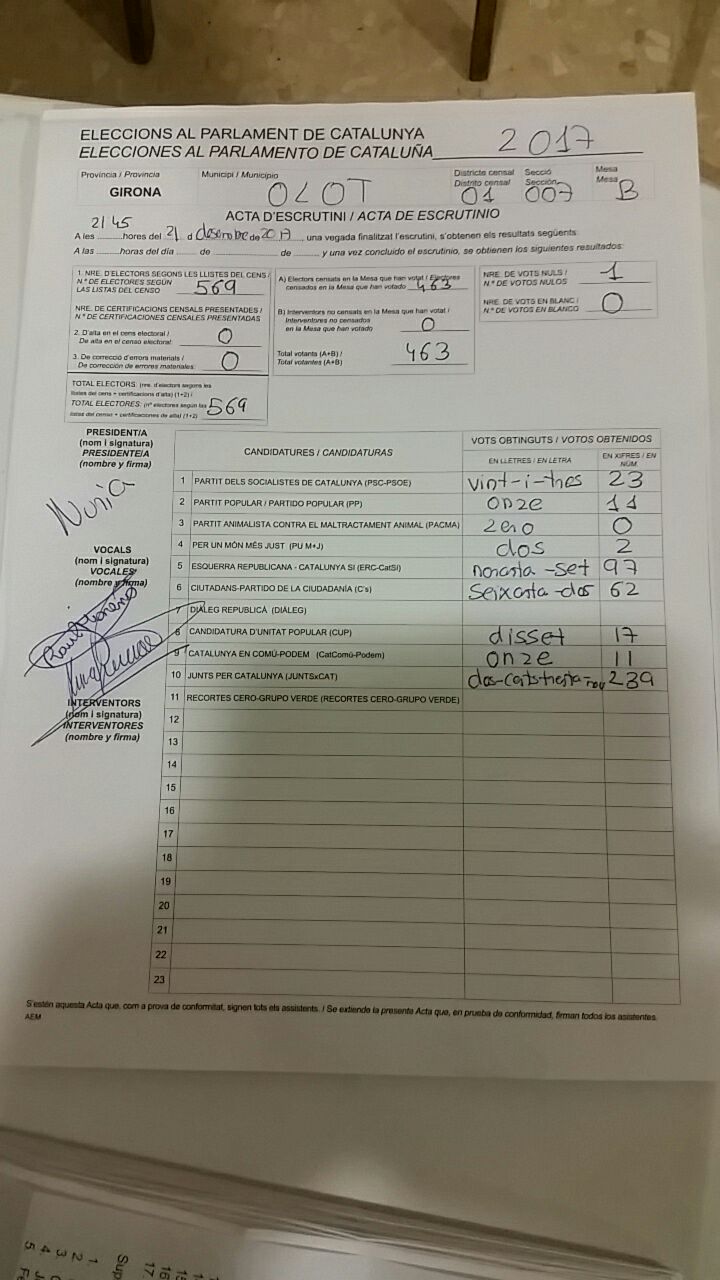 ELECCIONS AL PARLAMENT DE CATALUNYA
ELECCIONES AL PARLAMENTO DE CATALUÑA 2017
Província / Provincia Municipi / Municipio Districte censal Secció Mesa
Distrito censal Sección Mesa
GIRONA OLOT 01 007 B
ACTA D'ESCRUTINI / ACTA DE ESCRUTINIO
21 45
A les hores del 21 d desembre de 2017, una vegada finalitzat l'escrutini, s'obtenen els resultats següents:
A las horas del día de de y una vez concluido el escrutinio, se obtienen los siguientes resultados:
1. NRE. D'ELECTORS SEGONS LES LLISTES DEL CENS /
N.º DE ELECTORES SEGÚN
LAS LISTAS DEL CENSO 569
NRE. DE CERTIFICACIONS CENSALS PRESENTADES /
N.º DE CERTIFICACIONES CENSALES PRESENTADAS
2. D'alta en el cens electoral /
De alta en el censo electoral: 0
3. De correcció d'errors materials /
De corrección de errores materiales: 0
TOTAL ELECTORS: (nre. d'electors segons les
llistes del cens + certificacions d'alta) (1+2) /
TOTAL ELECTORES: (nº electores según las
listas del censo + certificaciones de alta) (1+2) 569
A) Electors censats en la Mesa que han votat / Electores
censados en la Mesa que han votado 463
B) Interventors no censats en la Mesa que han votat /
Interventores no censados
en la Mesa que han votado 0
Total votants (A+B) /
Total votantes (A+B) 463
NRE. DE VOTS NULS /
N.º DE VOTOS NULOS 1
NRE. DE VOTS EN BLANC /
N.º DE VOTOS EN BLANCO 0
PRESIDENT/A
(nom i signatura)
PRESIDENTE/A
(nombre y firma)
Nuria
VOCALS
(nom i signatura)
VOCALES
(nombre y firma)
INTERVENTORS
(nom i signatura)
INTERVENTORES
(nombre y firma)
CANDIDATURES / CANDIDATURAS VOTS OBTINGUTS / VOTOS OBTENIDOS
EN LLETRES / EN LETRA EN XIFRES / EN NÚM.
1 PARTIT DELS SOCIALISTES DE CATALUNYA (PSC-PSOE) vint-i-tres 23
2 PARTIT POPULAR / PARTIDO POPULAR (PP) onze 11
3 PARTIT ANIMALISTA CONTRA EL MALTRACTAMENT ANIMAL (PACMA) zero 0
4 PER UN MÓN MÉS JUST (PU M+J) dos 2
5 ESQUERRA REPUBLICANA - CATALUNYA SI (ERC-CatSI) noranta-set 97
6 CIUTADANS-PARTIDO DE LA CIUDADANÍA (C's) seixanta-dos 62
7 DIÀLEG REPUBLICÀ (DIÀLEG)
8 CANDIDATURA D'UNITAT POPULAR (CUP) disset 17
9 CATALUNYA EN COMÚ-PODEM (CatComú-Podem) onze 11
10 JUNTS PER CATALUNYA (JUNTSxCAT) dos-cents-trenta-nou 239
11 RECORTES CERO-GRUPO VERDE (RECORTES CERO-GRUPO VERDE)
12
13
14
15
16
17
18
19
20
21
22
23
S'estén aquesta Acta que, com a prova de conformitat, signen tots els assistents. / Se extiende la presente Acta que, en prueba de conformidad, firman todos los asistentes.
AEM